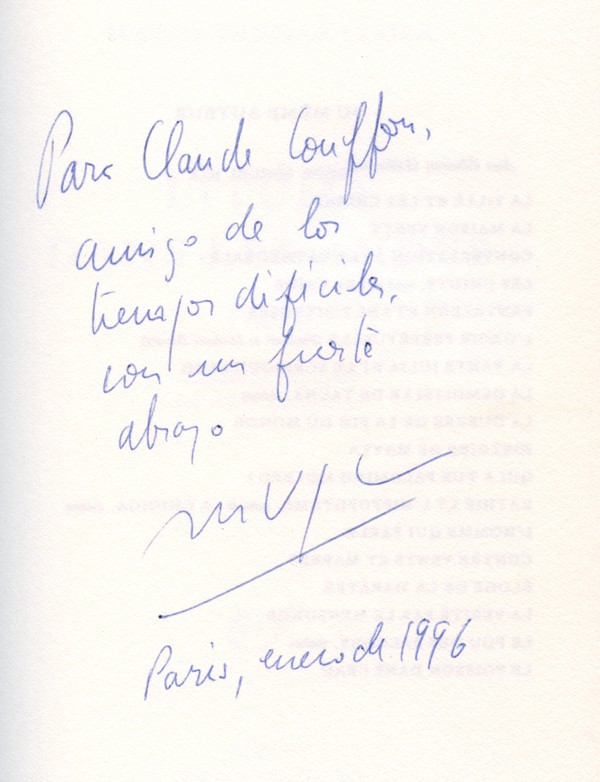 Para Claude Couffon,
amigo de los
tiempos difíciles,
con un fuerte
abrazo
París, enero de 1996